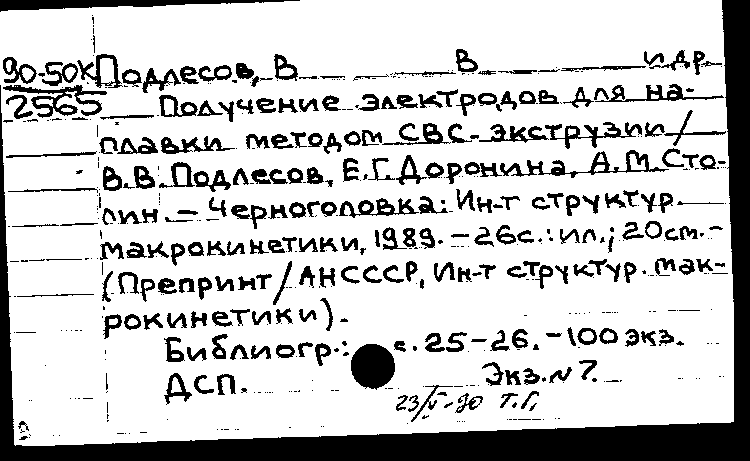 90-50К Подлесов, В В и др
2565 Получение электродов для на-
плавки методом СВС-экструзии /
В.В. Подлесов, Е.Г. Доронина, А.М. Сто-
лин. – Черноголовка: Ин-т структур.
макрокинетики, 1989. – 26с.: ил.; 20см. –
(Препринт / АНСССР, Ин-т структур. мак-
рокинетики).
Библиогр.: с. 25-26. – 100 экз.
ДСП. Экз. N 7.
23/V-90 Т.Г.